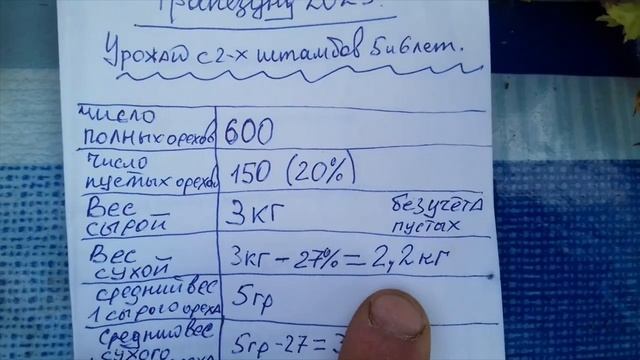 Трапезунд 2023г.
Урожай с 2-х штамбов 5и6лет.
число
полных орехов
600
число
пустых орехов
150 (20%)
Вес
сырой
3кг
без учёта
пустых
Вес
сухой
3кг - 27% = 2,2кг
средний вес
1 сырого ореха
5гр
средний вес
сухого
5гр - 27 = 3